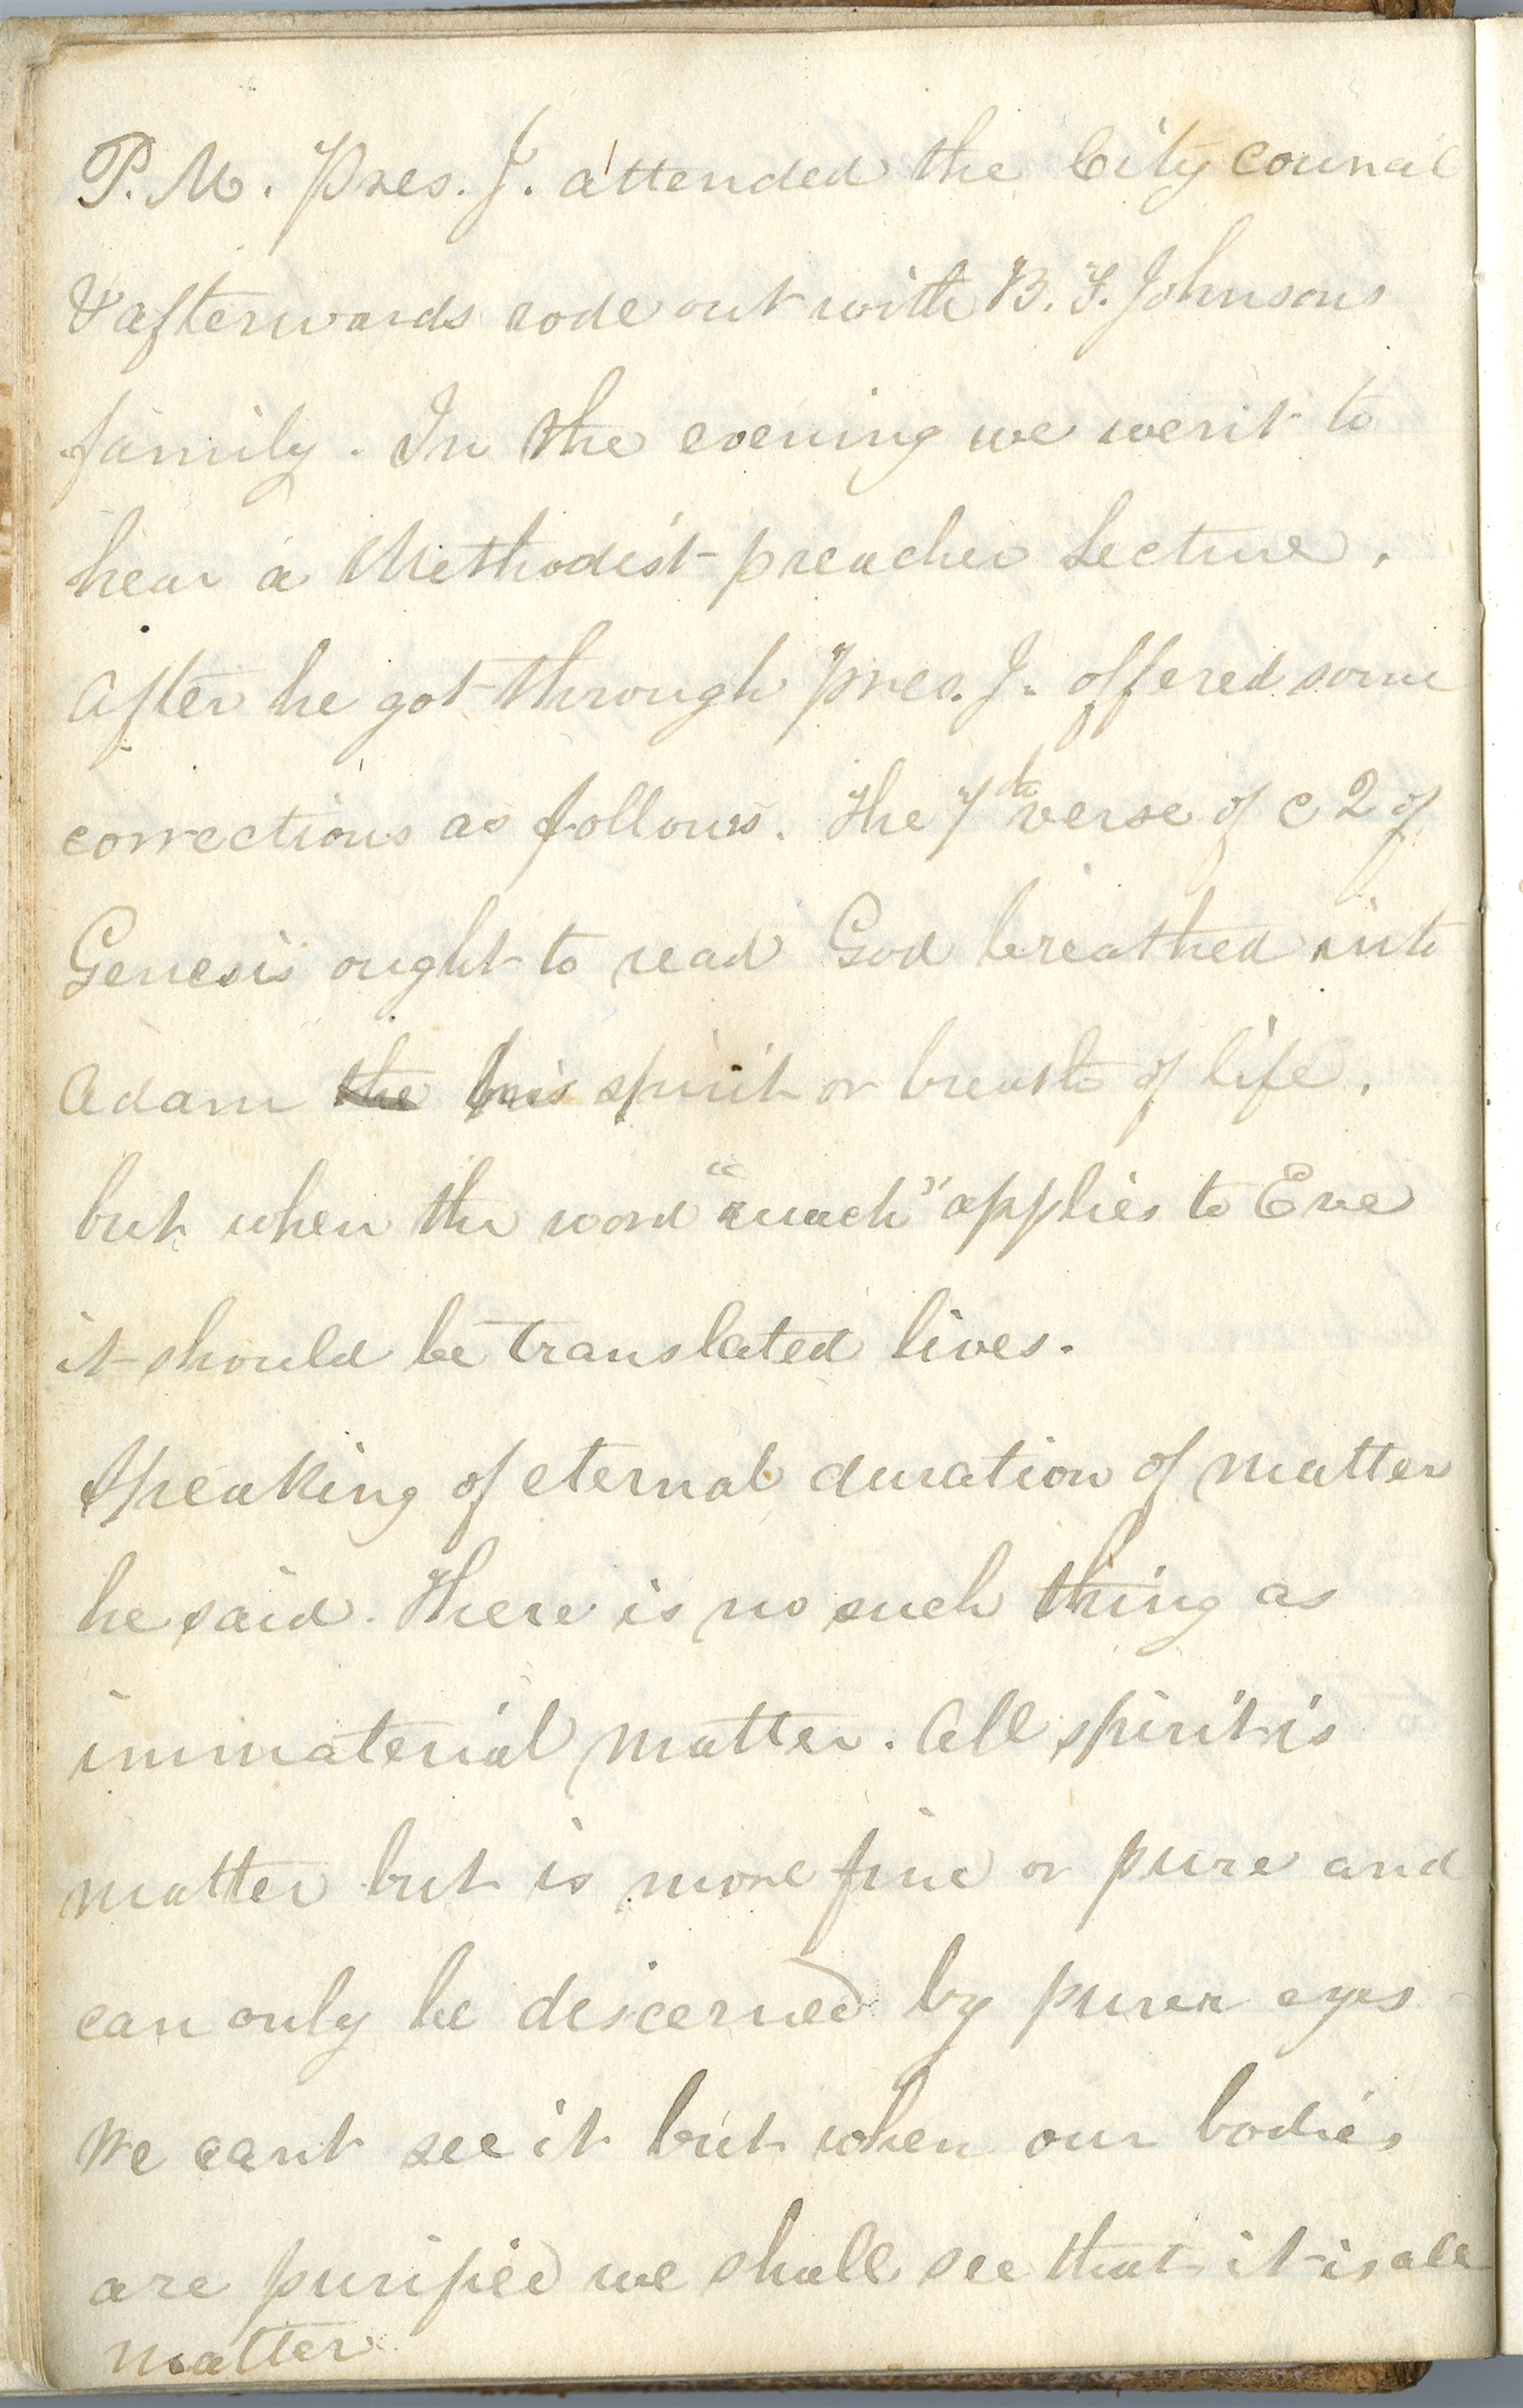 P.M. Pres. J. attended the City council
& afterwards rode out with B. F. Johnsons
family. In the evening we went to
hear a Methodist preacher lecture.
After he got through Pres. J. offered some
corrections as follows. The 7th verse of c 2 of
Genesis ought to read God breathed into
Adam the his spirit or breath of life.
but when the word "ruach" applies to Eve
it should be translated lives.
Speaking of eternal duration of matter
he said. There is no such thing as
immaterial matter. All spirit is
matter but is more fine or pure and
can only be discerned by purer eyes
We cant see it but when our bodies
are purified we shall see that it is all
matter